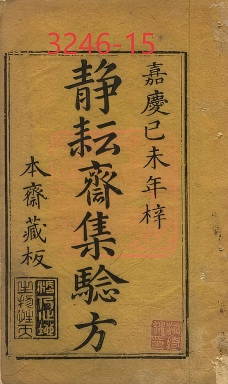 3246-15
嘉慶己未年梓
静耘齋集驗方
本齋藏板